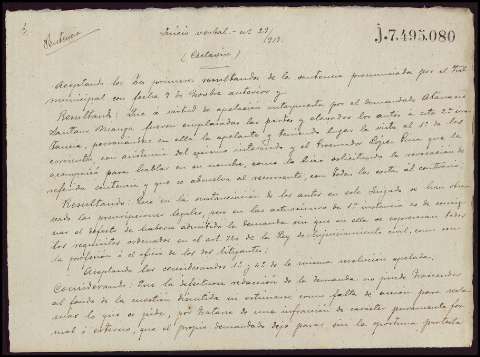 Sentencia
Juicio verbal - nº 29/1913.
J.7.495.080
(Casación)
Aceptando los dos primeros resultandos de la sentencia pronunciada por el Tral
municipal con fecha 9 de anterior y
Resultando: Que a virtud de apelación interpuesta por el demandado Atanasio
Santam fueron emplazadas las partes y elevados los autos a esta 2ª ins-
tancia, personándose en ella la apelante y teniendo lugar la vista el 1º de los
corrientes, con asistencia del mismo interesado y el Procurador que le
acompañó para hablar en su nombre, como lo hizo solicitando la revocación de
referida sentencia y que se absuelva al recurrente, con todas las costas al contrario.
Resultando: Que en la sustanciación de los autos en este Juzgado se han obser-
vado las prescripciones legales, pero en las actuaciones de 1ª instancia es de consig-
nar el defecto de haberse admitido la demanda sin que en ella se expresaran todos
los requisitos ordenados en el artº 720 de la Ley de Enjuiciamiento civil, como son
la profesión ú oficio de los dos litigantes.
Aceptando los considerandos 1º y 4º de la misma resolución apelada.
Considerando: Que la defectuosa redacción de la demanda no puede trascender
al fondo de la cuestión discutida ni estimarse como falta de acción para recla-
mar lo que se pide, pues tratase de una infracción de carácter puramente for-
mal ó externo, que el propio demandado dejó pasar sin la oportuna protesta